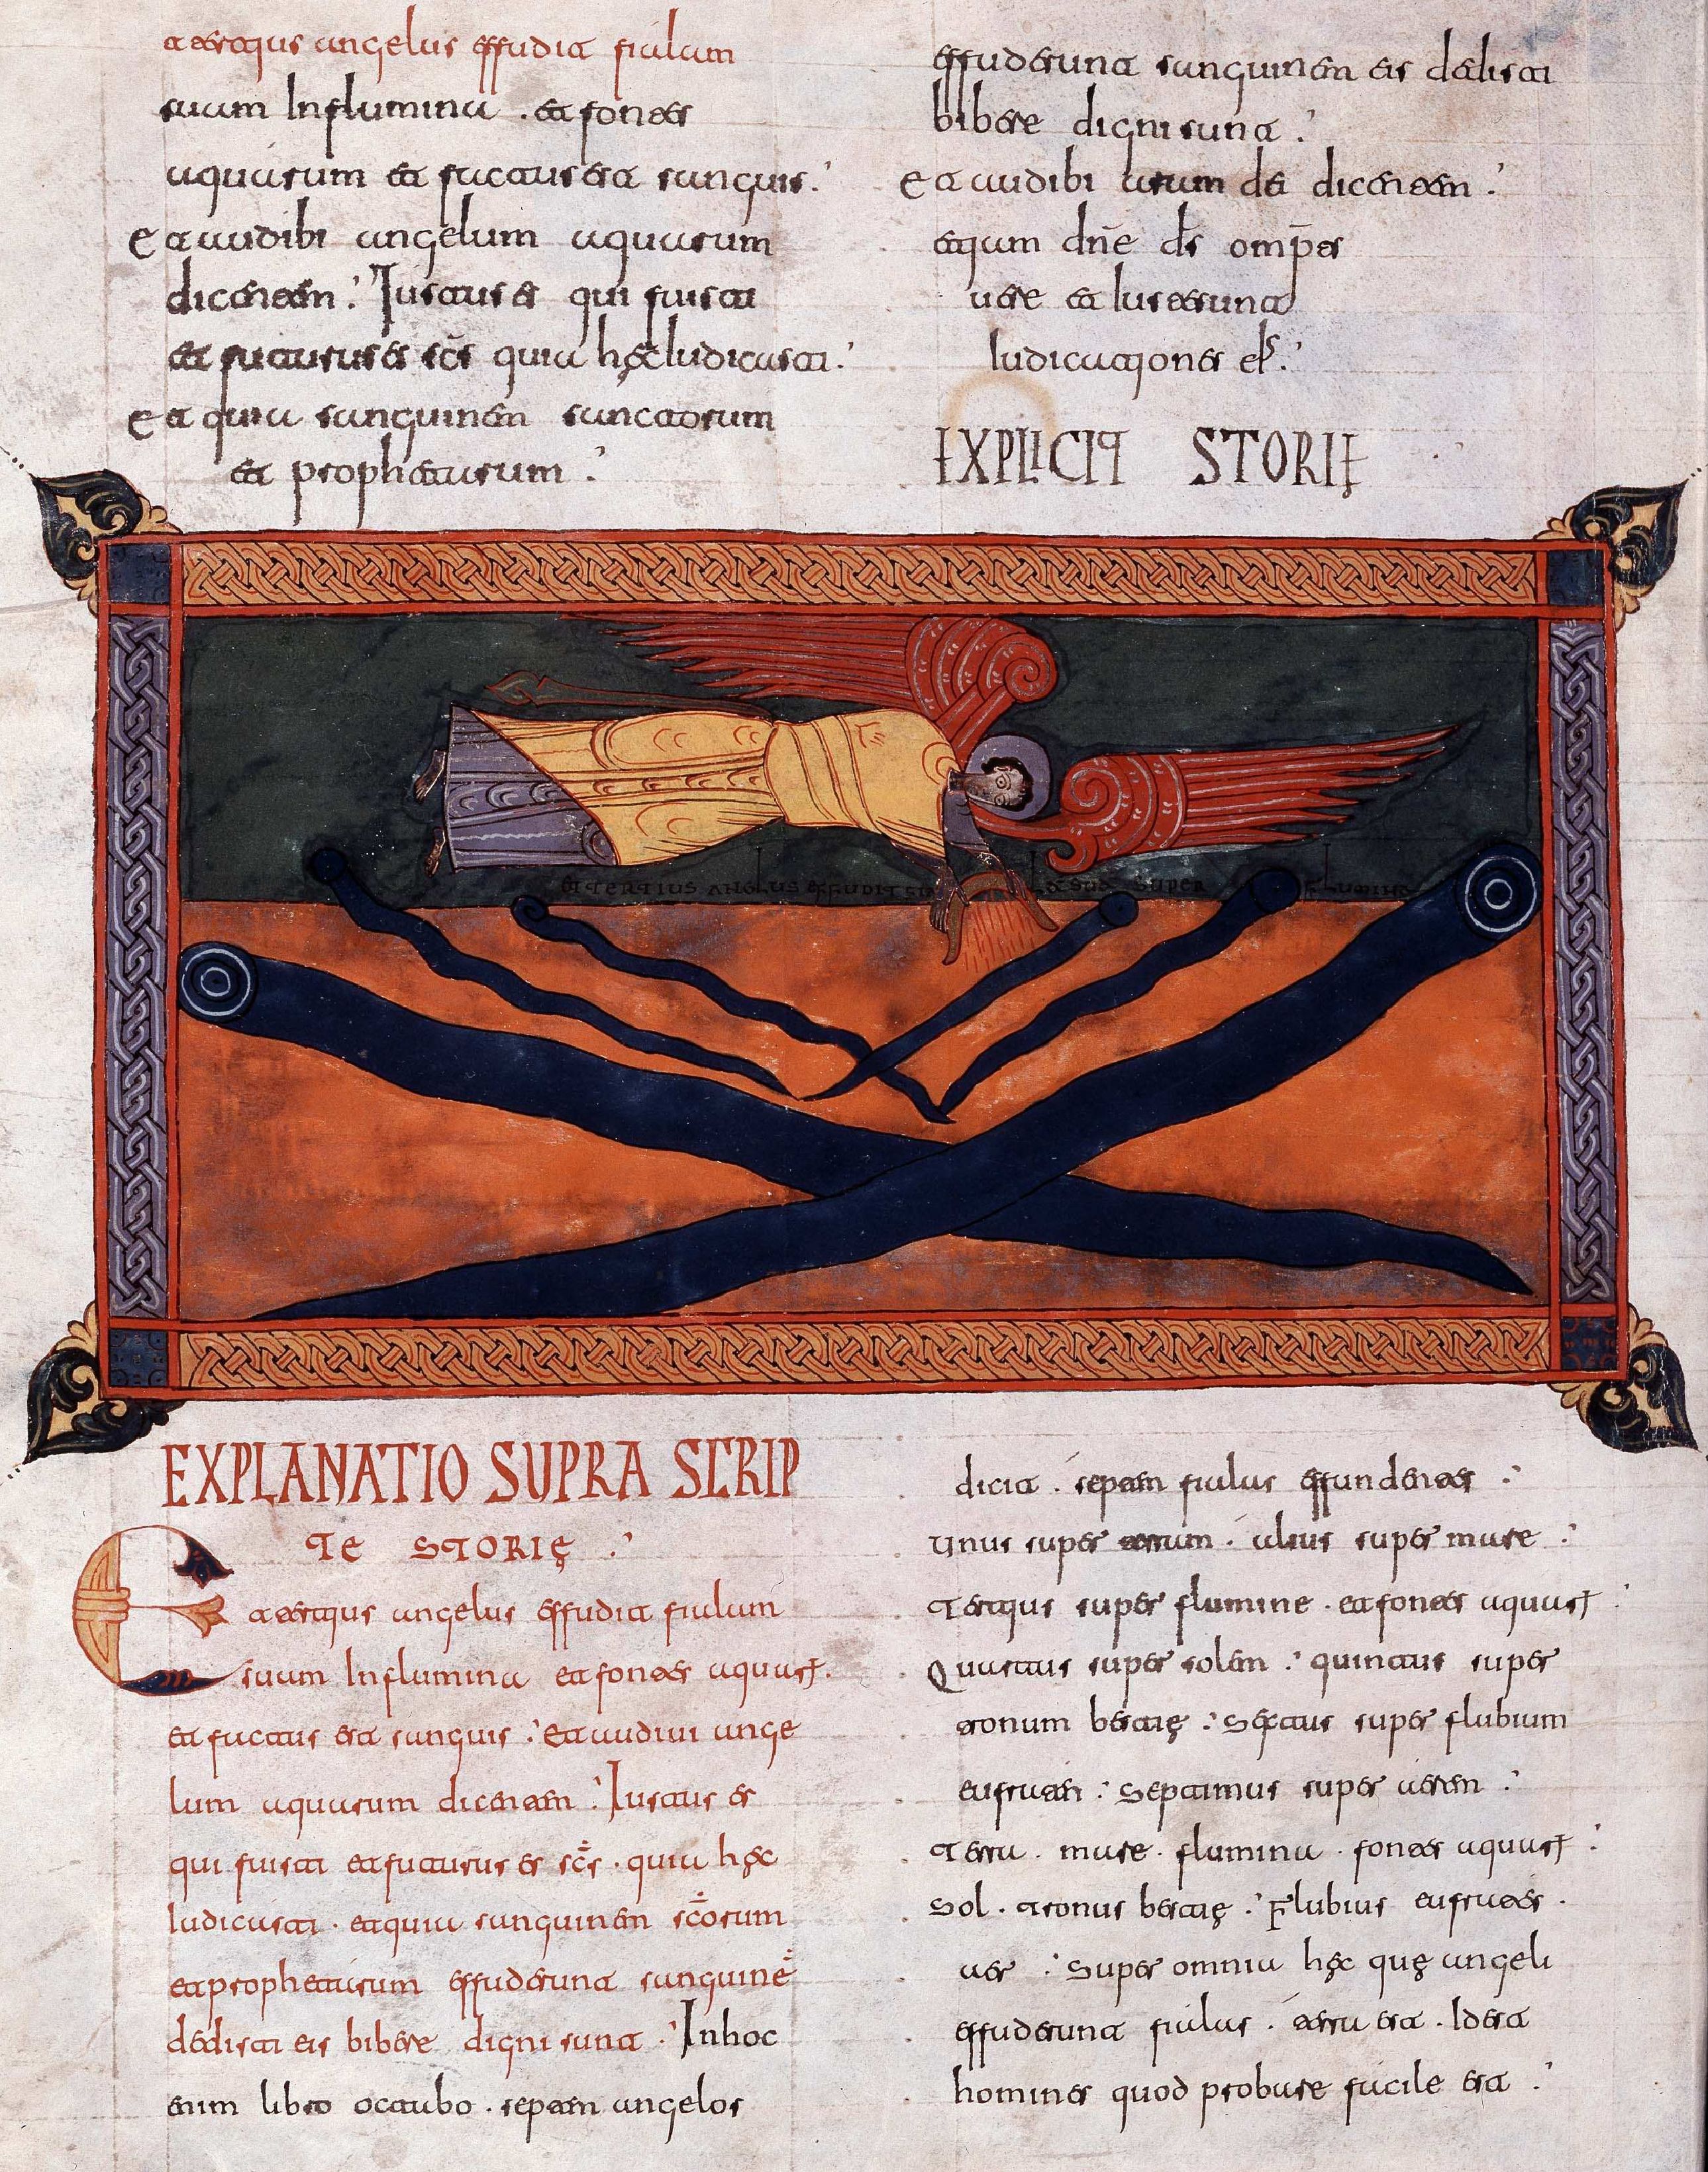 tertius angelus effudit fialam
suam In flumina . et fontes
aquarum et factus est sanguis .
Et audibi angelum aquarum
dicentem . Iustus es qui fuisti
et futurus es scs quia hęc Iudicasti .
Et quia sanguinem sanctorum
et prophetarum .
effuderunt sanguinem eis dedisti
bibere digni sunt .
Et audibi
dicentem .
etiam dne ds omps
vere et Iuste sunt
Iudicationes
EXPLICIT STORIĘ
ET TERTIUS ANGELUS EFFUDIT SUPER FLUMINA
EXPLANATIO SUPRA SCRIP
TE STORIĘ .
Et tertius angelus effudit fialam
suam In flumina et fontes aquar .
et factus est sanguis . Et audivi ange
lum aquarum dicentem . Iustus es
qui fuisti et futurus es scs . quia hęc
Iudicasti . et quia sanguinem scorum
et prophetarum effuderunt sanguine
dedisti eis bibere digni sunt . In hoc
enim libro octabo . septem angelos
dicit . septem fialas effundentes .
Unus super terram . alius super mare .
Tertius super flumine . et fontes aquar .
Quartus super solem . quintus super
tronum bestię . Sextus super flubium
eufraten . Septimus super aerem .
Terra . mare . flumina . fontes aquar .
Sol . tronus bestię . Flubius eufrates .
aer . Super omnia hęc quę angeli
effuderunt fialas . terra est . Id est
homines quod probare facile est .